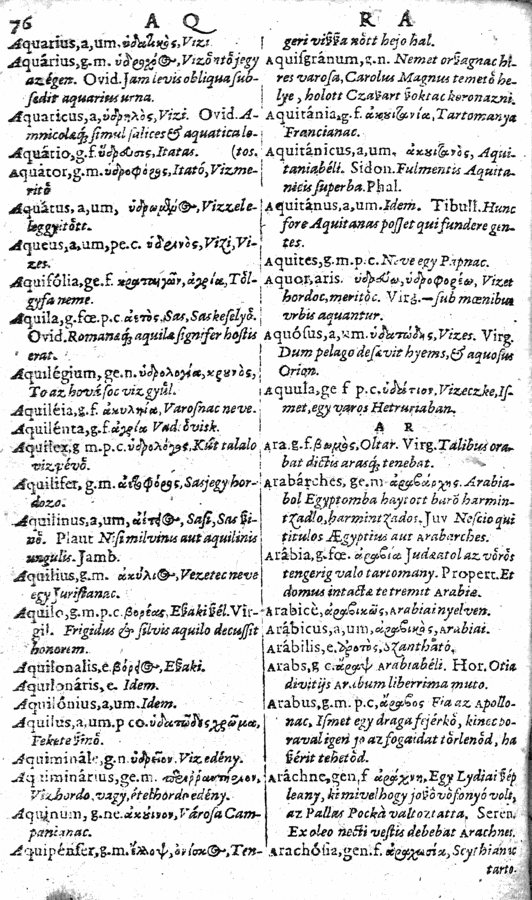 76 A Q
Aquarius, a, um. ὑδατικὸς, Vizi.
Aquárius, g. m. ὑδροχό☉, Vizŏntŏ jegy
az égen. Ovid. Jam levis obliqua sub-
sedit aquarius urna.
Aquaticus, a, ὑδρηλὸς, Vizi. Ovid. A-
mnicolæq́; simul salices & aquatica lo-
Aquâtio, g. f. ὕδρευσις, Itatas. (tos.
Aquator, g. m. ὑδροφόρος, Itató, Vizme-
ritŏ
Aquâtus, a, um, Vizzel e-
leggyitŏtt.
Aqueus, a, um, pe. c. Vizi, Vi-
zes.
Aquifólia, ge. f. ἀγρία, Tŏl-
gyfa neme.
Aquila, g. fœ. p. c. ἀετὸς, Sas, Saskeselyŏ.
Ovid. Romanæq́; aquilæ signifer hostis
erat.
Aquilégium, ge. n. ὑδρολογία, κρουνὸς,
To az hová soc viz gyŭl.
Aquiléia, g. f. ἀκυληία, Varosnac neve.
Aquilénta, g. f. ἀγρία Vad ŏvisk.
Aquilex, g m. p. c. ὑδρολόγος, Kút talalo
viz vévŏ.
Aquilifer, g. m. ἀετοφόρος, Sas jegy hor-
dozo.
Aquilinus, a, um, Sasi, Sas ßi-
nŏ. Plaut Nisi milvinus aut aquilinis
ungulis. Jamb.
Aquilius, g. m. ἀκύλι☉, Vezetec neve
egy Juristanac.
Aquilo, g. m. p. c. βορέας, Eßaki ßél. Vir-
gil. Frigidus & silvis aquilo decussit
honorem.
Aquilonalis, e. Eßaki.
Aquilonáris, e. Idem.
Aquilónius, a, um. Idem.
Aquilus, a, um. p co. ὑδατώδης χρῶμα,
Fekete ßinŏ.
Aquiminále, g. n. ὑδρεῖον, Viz edény.
Aquiminárius, ge. m.
Viz hordo, vagy, étel hordo edény.
Aquinum, g. ne. ἀκύινον, Városa Cam-
panianac.
Aquipénser, g. m. ἔλλοψ, ὀνίσκ☉, Ten-
R A
geri vißßa nŏtt hejo hal.
Aquisgránum, g. n. Nemet orßagnac hí-
res varosa, Carolus Magnus temetŏ he-
lye, holott Czaßart ßoktac koronazni.
Aquitánia, g. f. ἀκυιτανία, Tartomanya
Francianac.
Aquitánicus, a, um. ἀκυιτανὸς, Aqui-
taniabéli. Sidon. Fulmentis Aquita-
nicis superba. Phal.
Aquitánus, a, um. Idem. Tibull. Hunc
fore Aquitanas posset qui fundere gen-
tes.
Aquites, g. m. p. c. Neve egy Papnac.
Aquor, aris. ὑδρεύω, ὑδροφορέω, Vizet
hordoc, meritŏc. Virg. — sub mœnibus
urbis aquantur.
Aquósus, a, um. ὑδατώδης, Vizes. Virg.
Dum pelago desævit hyems, & aquosus
Orion.
Aquula, ge f p. c. ὑδάτιον, Vizeczke, Is-
met, egy varos Hetruriaban.
A R
Ara. g. f. βωμὸς, Oltar. Virg. Talibus ora-
bat dictis arasq́; tenebat.
Arabárches, ge. m ἀραβάρχης. Arabia-
bol Egyptomba haytott barŏ harmin-
tzadlo, harmintzados. Juv Nescio qui
titulos Ægyptius aut Arabarches.
Arábia, g. fœ. ἀραβία Judæatol az vŏrŏs
tengerig valo tartomany. Propert. Et
domus intactæ te tremit Arabiæ.
Arabicè, ἀραβικῶς, Arabiai nyelven.
Arábicus, a, um, ἀραβικὸς, Arabiai.
Arábilis, e. ἀροτὸς, Szanthatŏ.
Arabs, g c. ἄραψ Arabiabéli. Hor. Otia
divitijs Arabum liberrima muto.
Arabus, g. m. p. c, ἄραβος Fia az Apollo-
nac, Ismet egy draga fejérkŏ, kinec bo-
raval igen jo az fogaidat tŏrlenŏd, ha
ßérit tehetŏd.
Aráchne, gen, f ἀράχνη, Egy Lydiai ßép
leany, ki mivel hogy jo ßŏvŏ fonyó volt,
az Pallas Pockà valtoztatta. Seren.
Ex oleo necti vestis debebat Arachnes.
Arachósia, gen. f. ἀραχωσία, Scythiánac
tarto-